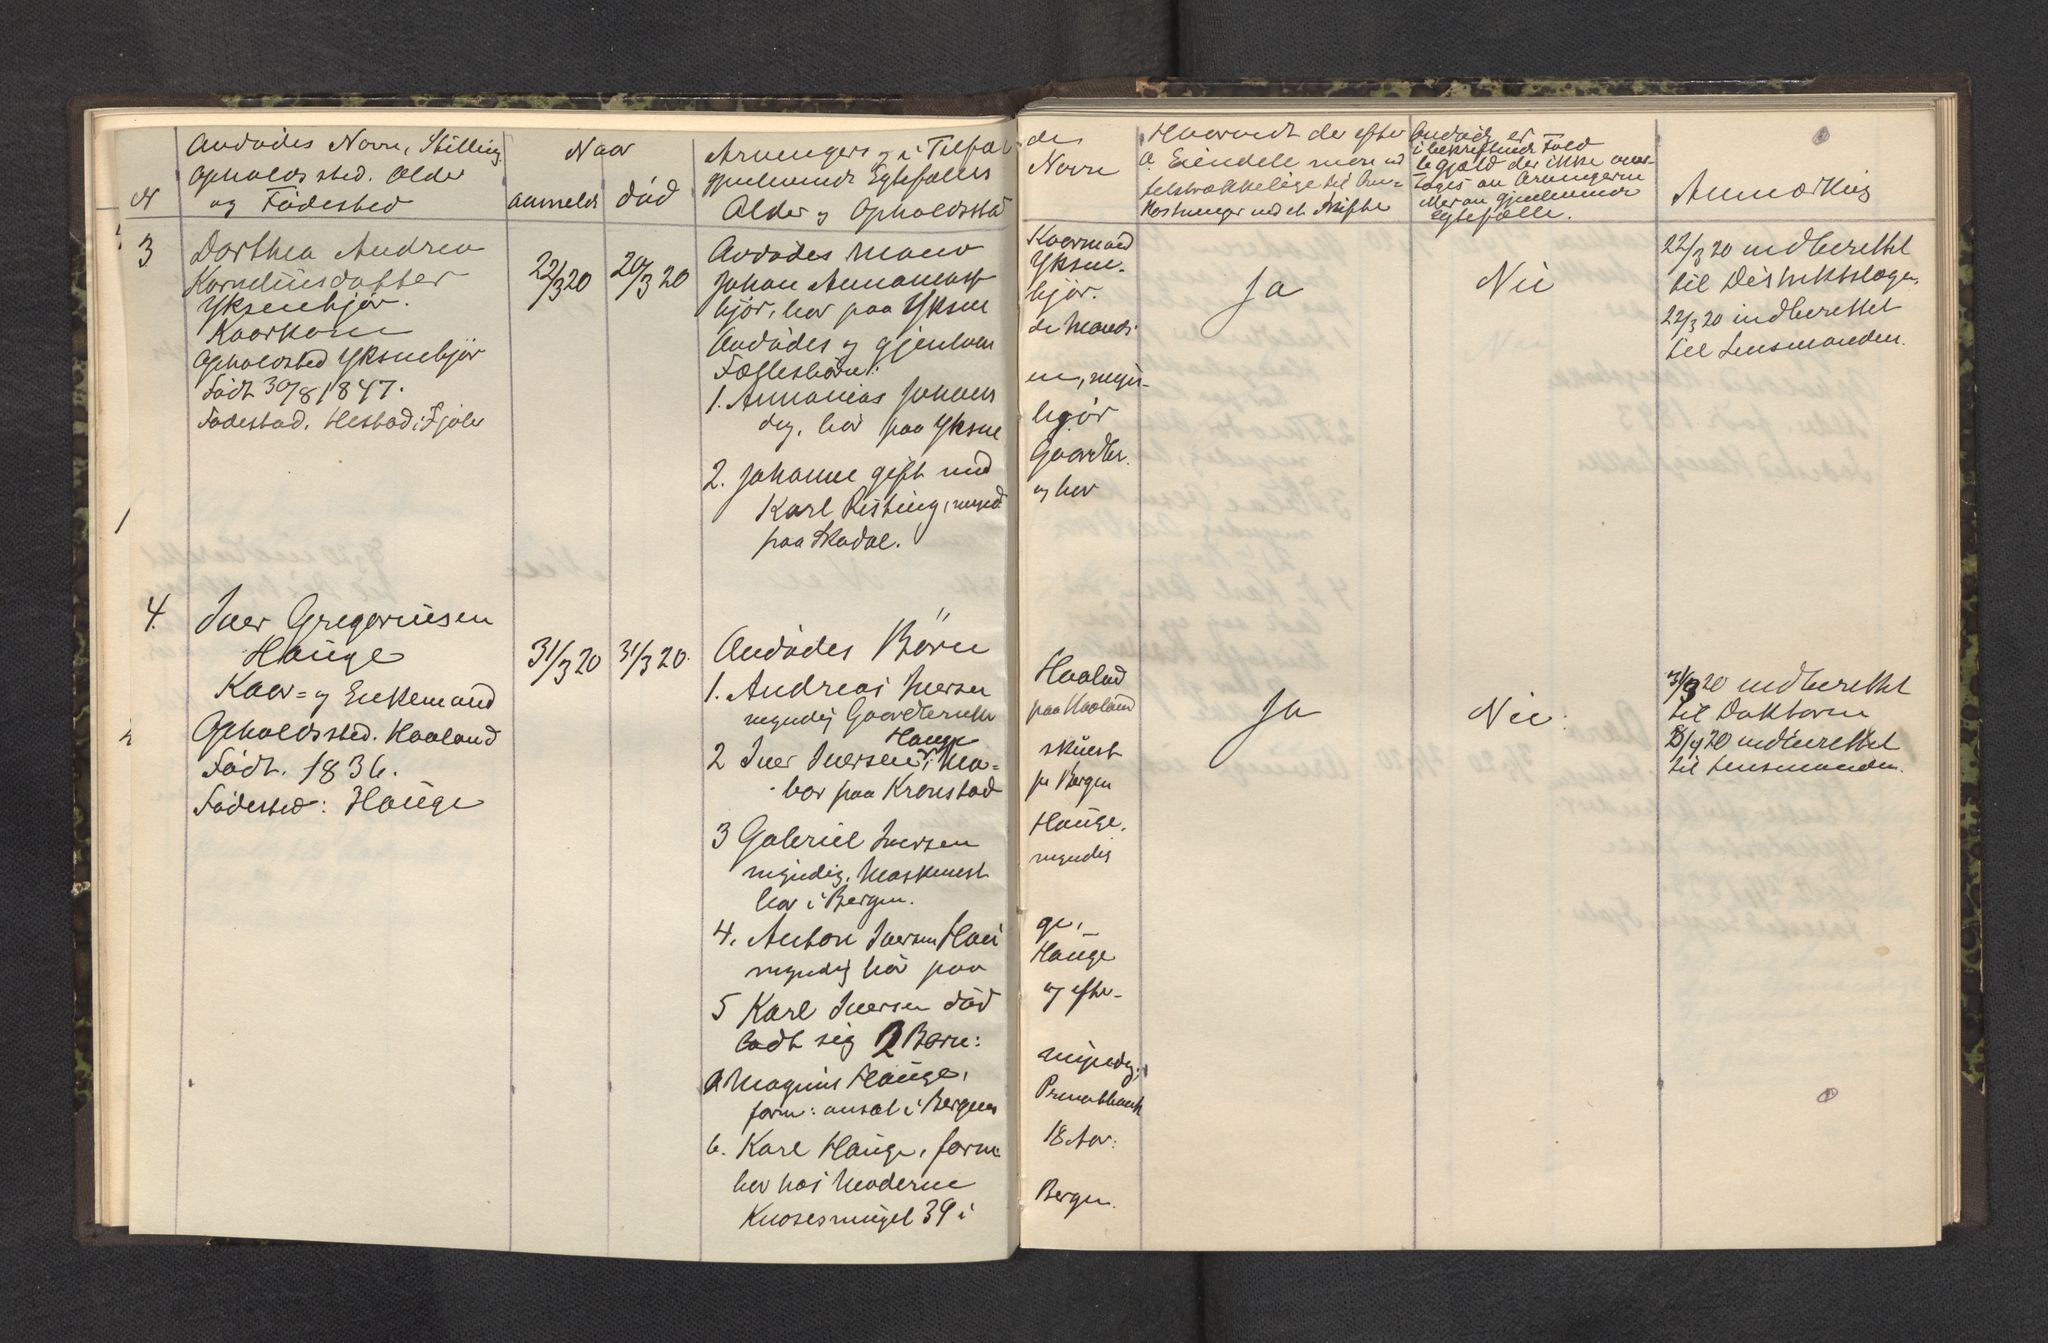 N
Avdødes Navn, Stilling
Opholdssted. Alder
og Fødested
Naar
anmeldt
død
Arvingers og i Tilfæl
gjenlevende Egtefælles
Alder og Opholdssted
de
Navn
Hvorvidt der efter
A. Eiendele mere end
tilstrækkelige til Om=
kostninger ved et Skifte
Avdøde er
i bekræftende Fald
Gjæld der ikke over-
tages av Arvingerne
eller av gjenlevende
Egtefælle.
Anmærkning
3
Dorthea Andrea
Korneliusdatter
Yksenbjør.
Kaarkone
Opholdssted Yksnebjør
Født 30/8 1847.
Fødested. Hestad i Fjaler
22/3 20
20/3 20
Avdødes Mand
Johan Annanias
bjør, bor paa Yksne
Avdødes og gjenlevn
Fællesbørn:
1. Annanias Johans
dig, bor paa Yksne
2. Johanne gift med
Karl Risting, mynd
paa Skadal.
Kaarmand
Yksne-
bjør.
de Mands
en, myn-
bjør
Gaardbr.
og bor
Ja
Nei
22/3 20 indberettet
til Distriktslægen.
22/3 20 indberettet
til Lensmanden.
1
4.
Iver Gregoriusen
Hauge
Kaar= og Enkemand
Opholdssted. Haaland
Født. 1836.
Fødested: Hauge
31/3 20
31/3 20.
Avdødes Børn
1. Andreas Iversen
myndig Gaardbruker
Hauge
2 Iver Iversen, Ma=
bor paa Kronstad
3 Gabriel Iversen
myndig, Maskinist
bor i Bergen.
4. Anton Iversen Hau
myndig bor paa
5 Karl Iversen død
ladt sig 2 Børn:
a Magnus Hauge,
form: ansat i Bergens
b. Karl Hauge, form
bor hos Moderen
Knøsesmuget 39 i
Haaland
paa Haaland
skinist
pr Bergen
Hauge,
myndig
ge,
Hauge
og efter-
myndig,
Privatbank
18 Aar:
Bergen.
Ja
Nei
31/3 20 indberettet
til Doktoren
8/4 20 indberettet
til Lensmanden.